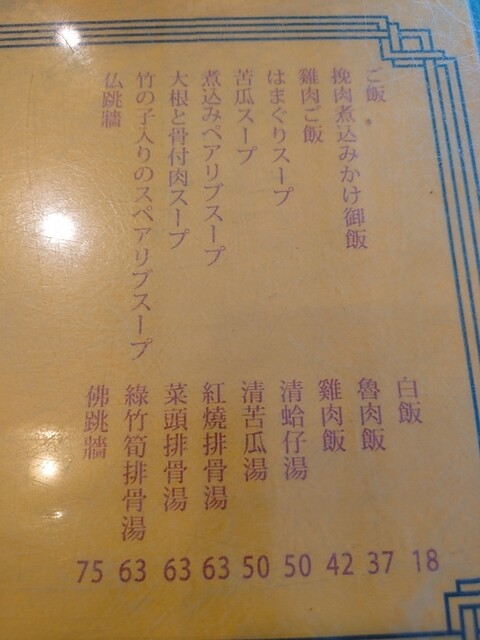 ご飯
挽肉煮込みかけ御飯
雞肉ご飯
はまぐりスープ
苦瓜スープ
煮込みペアリブスープ
大根と骨付肉スープ
竹の子入りのスペアリブスープ
仏跳牆
白飯 18
魯肉飯 37
雞肉飯 42
清蛤仔湯 50
清苦瓜湯 50
紅燒排骨湯 63
菜頭排骨湯 63
綠竹筍排骨湯 63
佛跳牆 75